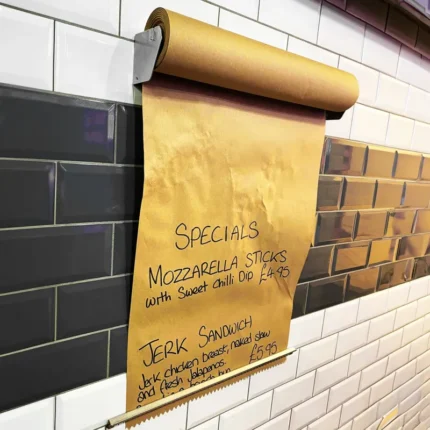 SPECIALS
MOZZARELLA STICKS
with Sweet Chilli Dip £4.95
JERK SANDWICH
Jerk chicken breast, naked slaw
and fresh Jalapenos £5.95